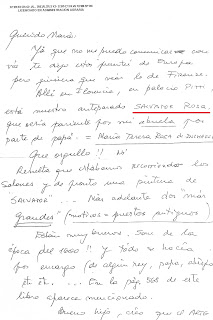 Querido Mario:
Ya que no me puedo comunicar con
vos te dejo otro puntito de Europa
pero quisiera que vias lo de Firenze.
Allí en Florencia, en palacio Pitti,
está nuestro antepasado SALVADOR ROSA,
que sería pariente por mi abuela por
parte de papá = María Teresa Rosa de
Que orgullo!! No?
Resulta que estábamos recorriendo los
Salones y de pronto una pintura de
SALVADOR ... Más adelante dos "más
grandes" (motivos = puertos antiguos)
Están muy buenos. Son de la
época del 1600 !! y todo se hacía
por encargo (de algún rey, papa, obispo
et et. ... En la pág 568 de este
libro aparece mencionado.
Bueno hijo, creo que el